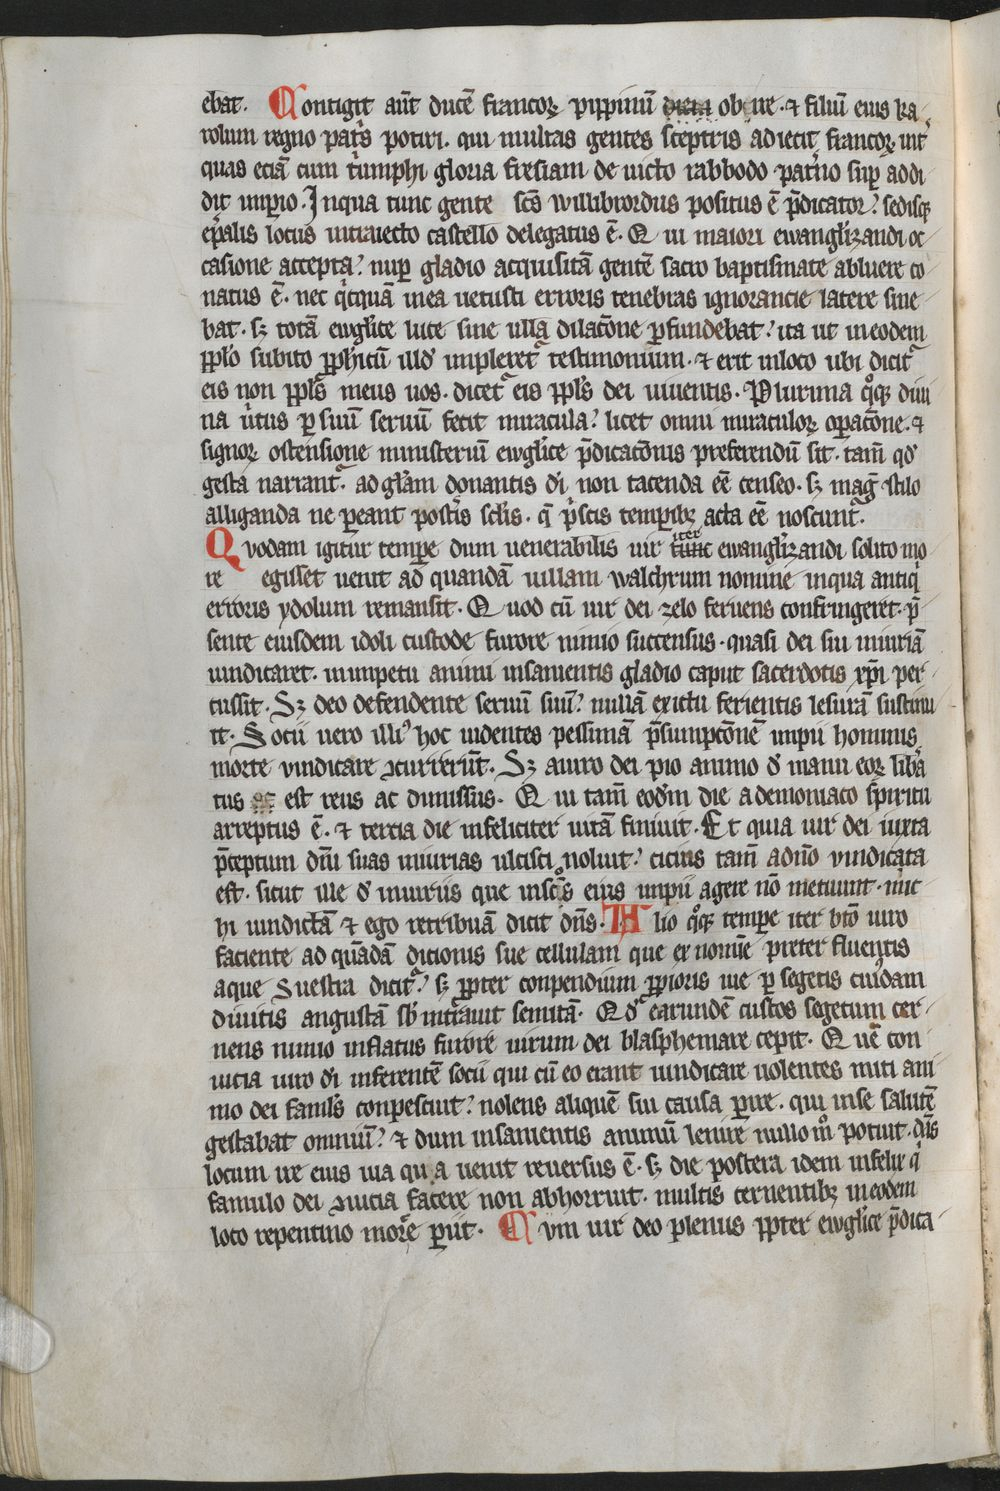 ebat. Contigit aūt ducē francoꝝ pippinū diem obire. ⁊ filiū eius ka-
rolum regno pat͛s potiri. qui multas gentes sceptris adiecit francoꝝ. int͛
quas eciā cum t͛umphi gloria fresiam de uicto rabbodo pat͛no suꝑ addi
dit imꝑio. Inqua tunc gente sc̄s willibrordus positus ē p̄dicator. sedisqꝫ
ep̄alis locus intraiecto castello delegatus ē. Qui maiori ewangłizandi oc
casione accepta. nuꝑ gladio acquisitā gentē sacro baptismate abluere co-
natus ē. nec qͥcquā inea uetusti erroris tenebras ignorancie latere sine-
bat. sꝫ totā ewgłice luce sine ulla dilac̄one ꝑfundebat. ita ut ineodem
ppło subito ꝓph̄icū illd̓ impleret᷑ testimonium. ⁊ erit inloco ubi dicit᷑
eis non ppłs meus uos. dicet᷑ eis ppłs dei uiuentis. Plurima qͦqꝫ diui
na u͛tus ꝑ suū seruū fecit miracula. licet omni miraculoꝝ oꝑac̄one. ⁊
signoꝝ ostensione ministeriū ewgłice p̄dicac̄onis preferendū sit. tam̄ qd̓
gesta narrant᷑. ad głam donantis d̄i non tacenda eē censeo. sꝫ mag͛ stilo
alliganda ne ꝑeant post͛is sc̄lis. q̄ pͥscis temꝑibꝫ acta eē noscunt᷑.
Quodam igitur temꝑe dum uenerabilis uir tunc iter ewangłizandi solito mo
re egisset uenit ad quandā uillam walchrum nomine inqua antiqͥ
erroris ydolum remansit. Quod cū uir dei zelo feruens confringeret. p̄-
sente eiusdem idoli custode furore nimio succensus. quasi dei sui iniuriā
uindicaret. inimpetu animi insanientis gladio caput sacerdotis xp̄i per-
cussit. Sꝫ deo defendente seruū suū. nullā exictu ferientis lesurā sustinu
it. Socii uero illiꝰ hoc uidentes pessimā p̄sumpc̄onē impii hominis
morte vindicare ꝯcurrerūt. Sꝫ auiro dei pio animo d̓ manu eoꝝ lib͛a
tus est reus ac dimissus. Qui tam̄ eod̄m die ademoniaco sp̄iritu
arreptus ē. ⁊ tercia die infeliciter uitā finiuit. Et quia uir dei iuxta
p̄ceptum dn̄i suas iniurias ulcisci noluit. cicius tam̄ adn̄o vindicata
est. sicut ille d̓ iniuriis que insc̄os eius impii agere nō metuunt. mic-
hi uindictā ⁊ ego retribuā dicit dn̄s. Alio qͦqꝫ temꝑe iter bt̄o uiro
faciente ad quādā dicionis sue cellulam que ex nomīe preter fluentis
aque Suestra dicit᷑. sꝫ ꝓpter conpendium ꝓpioris uie ꝑ segetis cuiꝰdam
diuitis angustā sb̓intrauit semitā. Qd̓ earundē custos segetum cer-
nens nimio inflatus furore uirum dei blasphemare cepit. Quē con
uicia uiro d̄i inferentē socii qui cū eo erant uindicare uolentes miti ani
mo dei famłs conpescuit. nolens aliquē sui causa ꝑire. qui inse salutē
gestabat omniū. ⁊ dum insanientis animū lenire nullo mͦ potuit. dn̄s
locum ire eius uia qua uenit reuersus ē. sꝫ die postera idem infelix qͥ
famulo dei ꝯuicia facere non abhorruit. multis cernentibꝫ ineodem
loco repentino morte ꝑiit. Cum uir deo plenus ꝓpter ewgłice p̄dica-